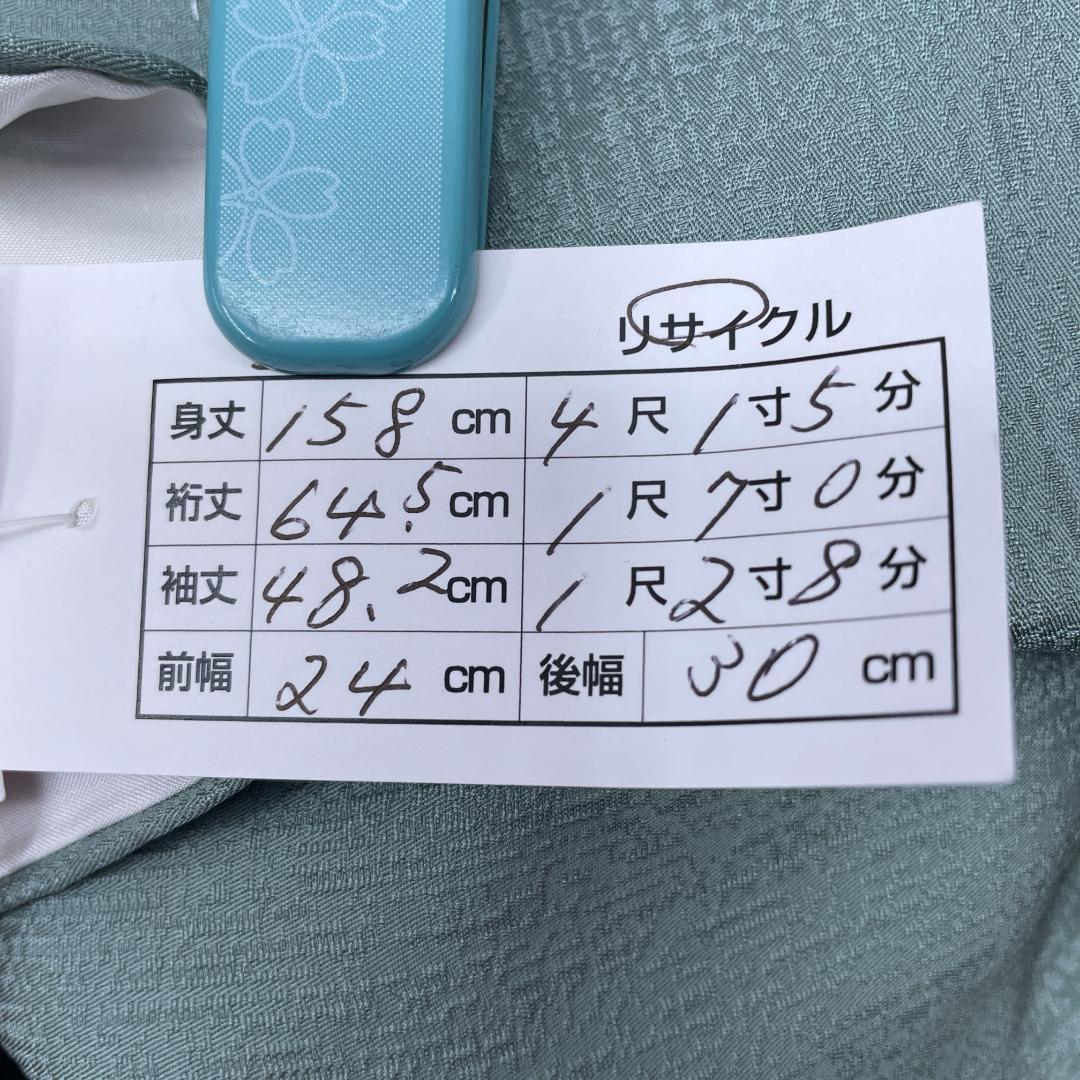 リサイクル
身丈 158 cm 4 尺 1 寸 5 分
裄丈 64.5 cm 1 尺 7 寸 0 分
袖丈 48.2 cm 1 尺 2 寸 8 分
前幅 24 cm 後幅 30 cm